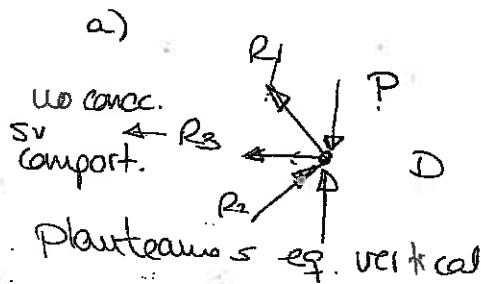 a)
R1
P
no conoc.
su ← R3
comport.
D
R2
. Planteamos eq. vertical